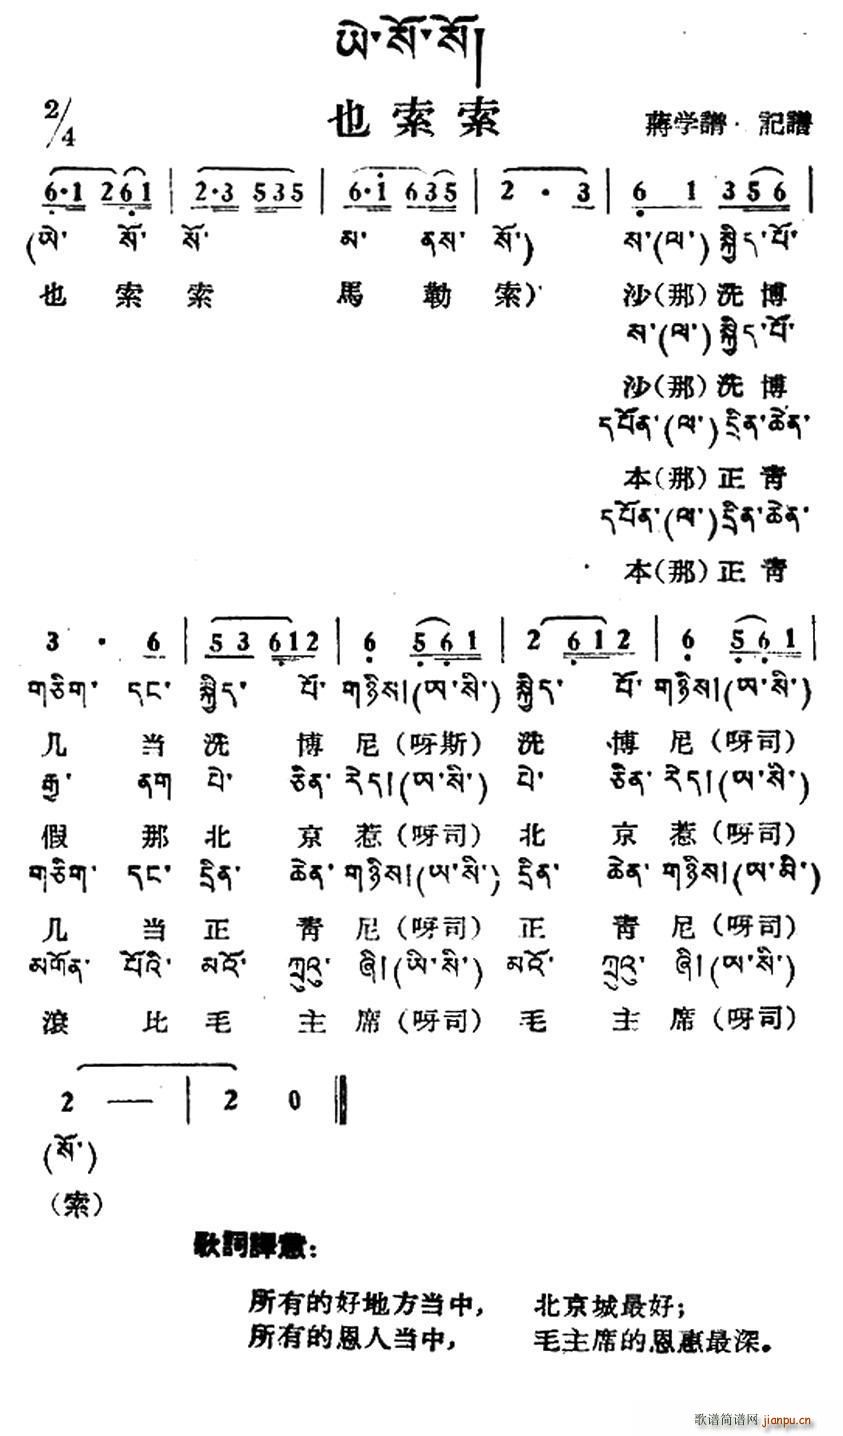 ཡེ་སོ་སོ།
2/4 也索索 蔣学譜·記譜
6·1 2 6 1 | 2·3 5 3 5 | 6·1 6 3 5 | 2 · 3 | 6 1 3 5 6 |
(ཡེ་ སོ་ སོ་ མ་ ནས་ སོ་) ས་(ལ་) སྐྱིད་པོ་
也 索 索 馬 勒 索) 沙(那)洗博
ས་(ལ་) སྐྱིད་པོ་
沙(那)洗博
དཔོན་(ལ་) དྲིན་ཆེན་
本(那)正青
དཔོན་(ལ་) དྲིན་ཆེན་
本(那)正青
3 · 6 | 5 3 6 1 2 | 6 5 6 1 | 2 6 1 2 | 6 5 6 1 |
གཅིག་ དང་ སྐྱིད་ པོ་ གཉིས།(ཨ་སི་) སྐྱིད་ པོ་ གཉིས།(ཨ་སི་)
几 当 洗 博 尼(呀斯) 洗 博 尼(呀司)
རྒྱ་ ནག པེ་ ཅིན་ རེད།(ཨ་སི་) པེ་ ཅིན་ རེད།(ཨ་སི་)
假 那 北 京 惹(呀司) 北 京 惹(呀司)
གཅིག་ དང་ དྲིན་ ཆེན་ གཉིས།(ཨ་སི་) དྲིན་ ཆེན་ གཉིས།(ཨ་སི་)
几 当 正 青 尼(呀司) 正 青 尼(呀司)
མགོན་ པོའི་ མའོ་ ཀྲུའུ་ ཞི།(ཨི་སི་) མའོ་ ཀྲུའུ་ ཞི།(ཨ་སི་)
滾 比 毛 主 席(呀司) 毛 主 席(呀司)
2 — | 2 0 ‖
(སོ་)
(索)
歌詞譯意:
所有的好地方当中, 北京城最好;
所有的恩人当中, 毛主席的恩惠最深。
歌谱简谱网 jianpu.cn